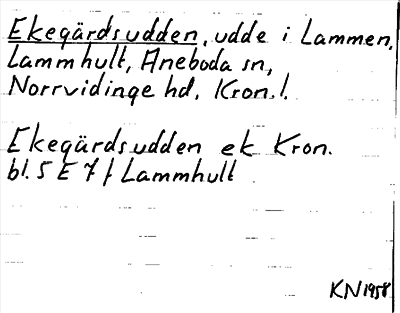 Ekegärdsudden, udde i Lammen,
Lammhult, Aneboda sn,
Norrvidinge hd, Kron.l.
Ekegärdsudden ek Kron.
bl. 5 E 7 f Lammhult
KN 1958